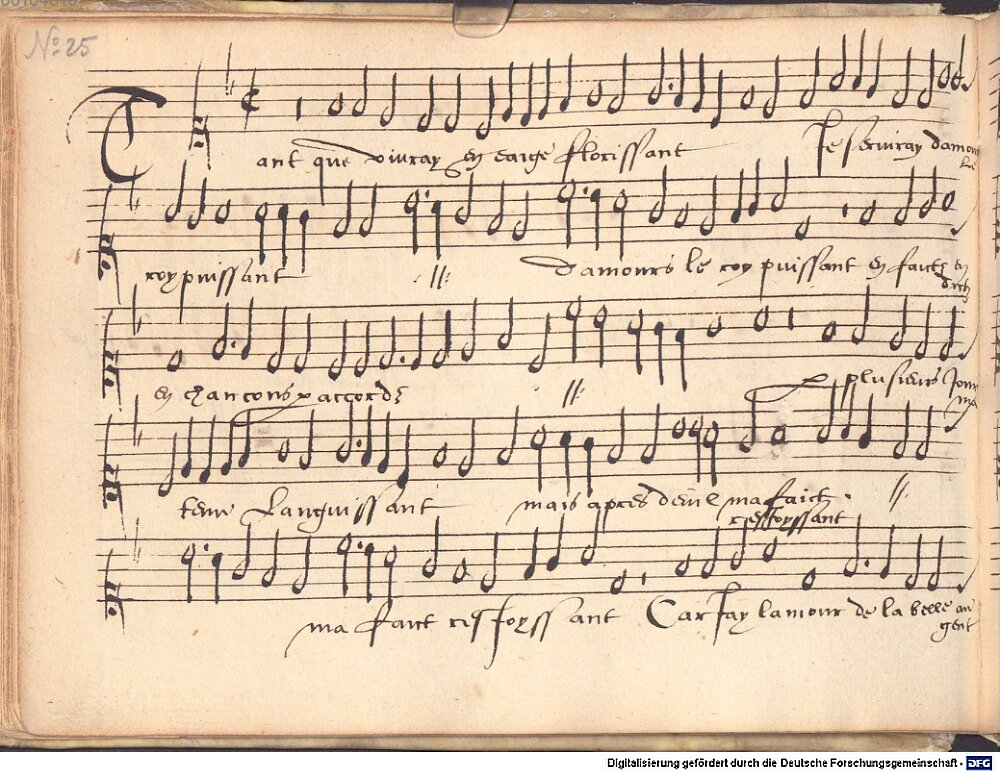 No 25
Tant que vivray en eaige florissant Je serviray damour
Le
roy puissant :||: damours le roy puissant en faictz en
dictz
en chancons p accordz :||: p plusieurs Jours
ma
tenu Languissant mais apres deuil ma faict :||:
resJoyssant
ma faict resJoyssant Car Jay lamour de la belle au
gent
Digitalisierung gefördert durch die Deutsche Forschungsgemeinschaft - DFG